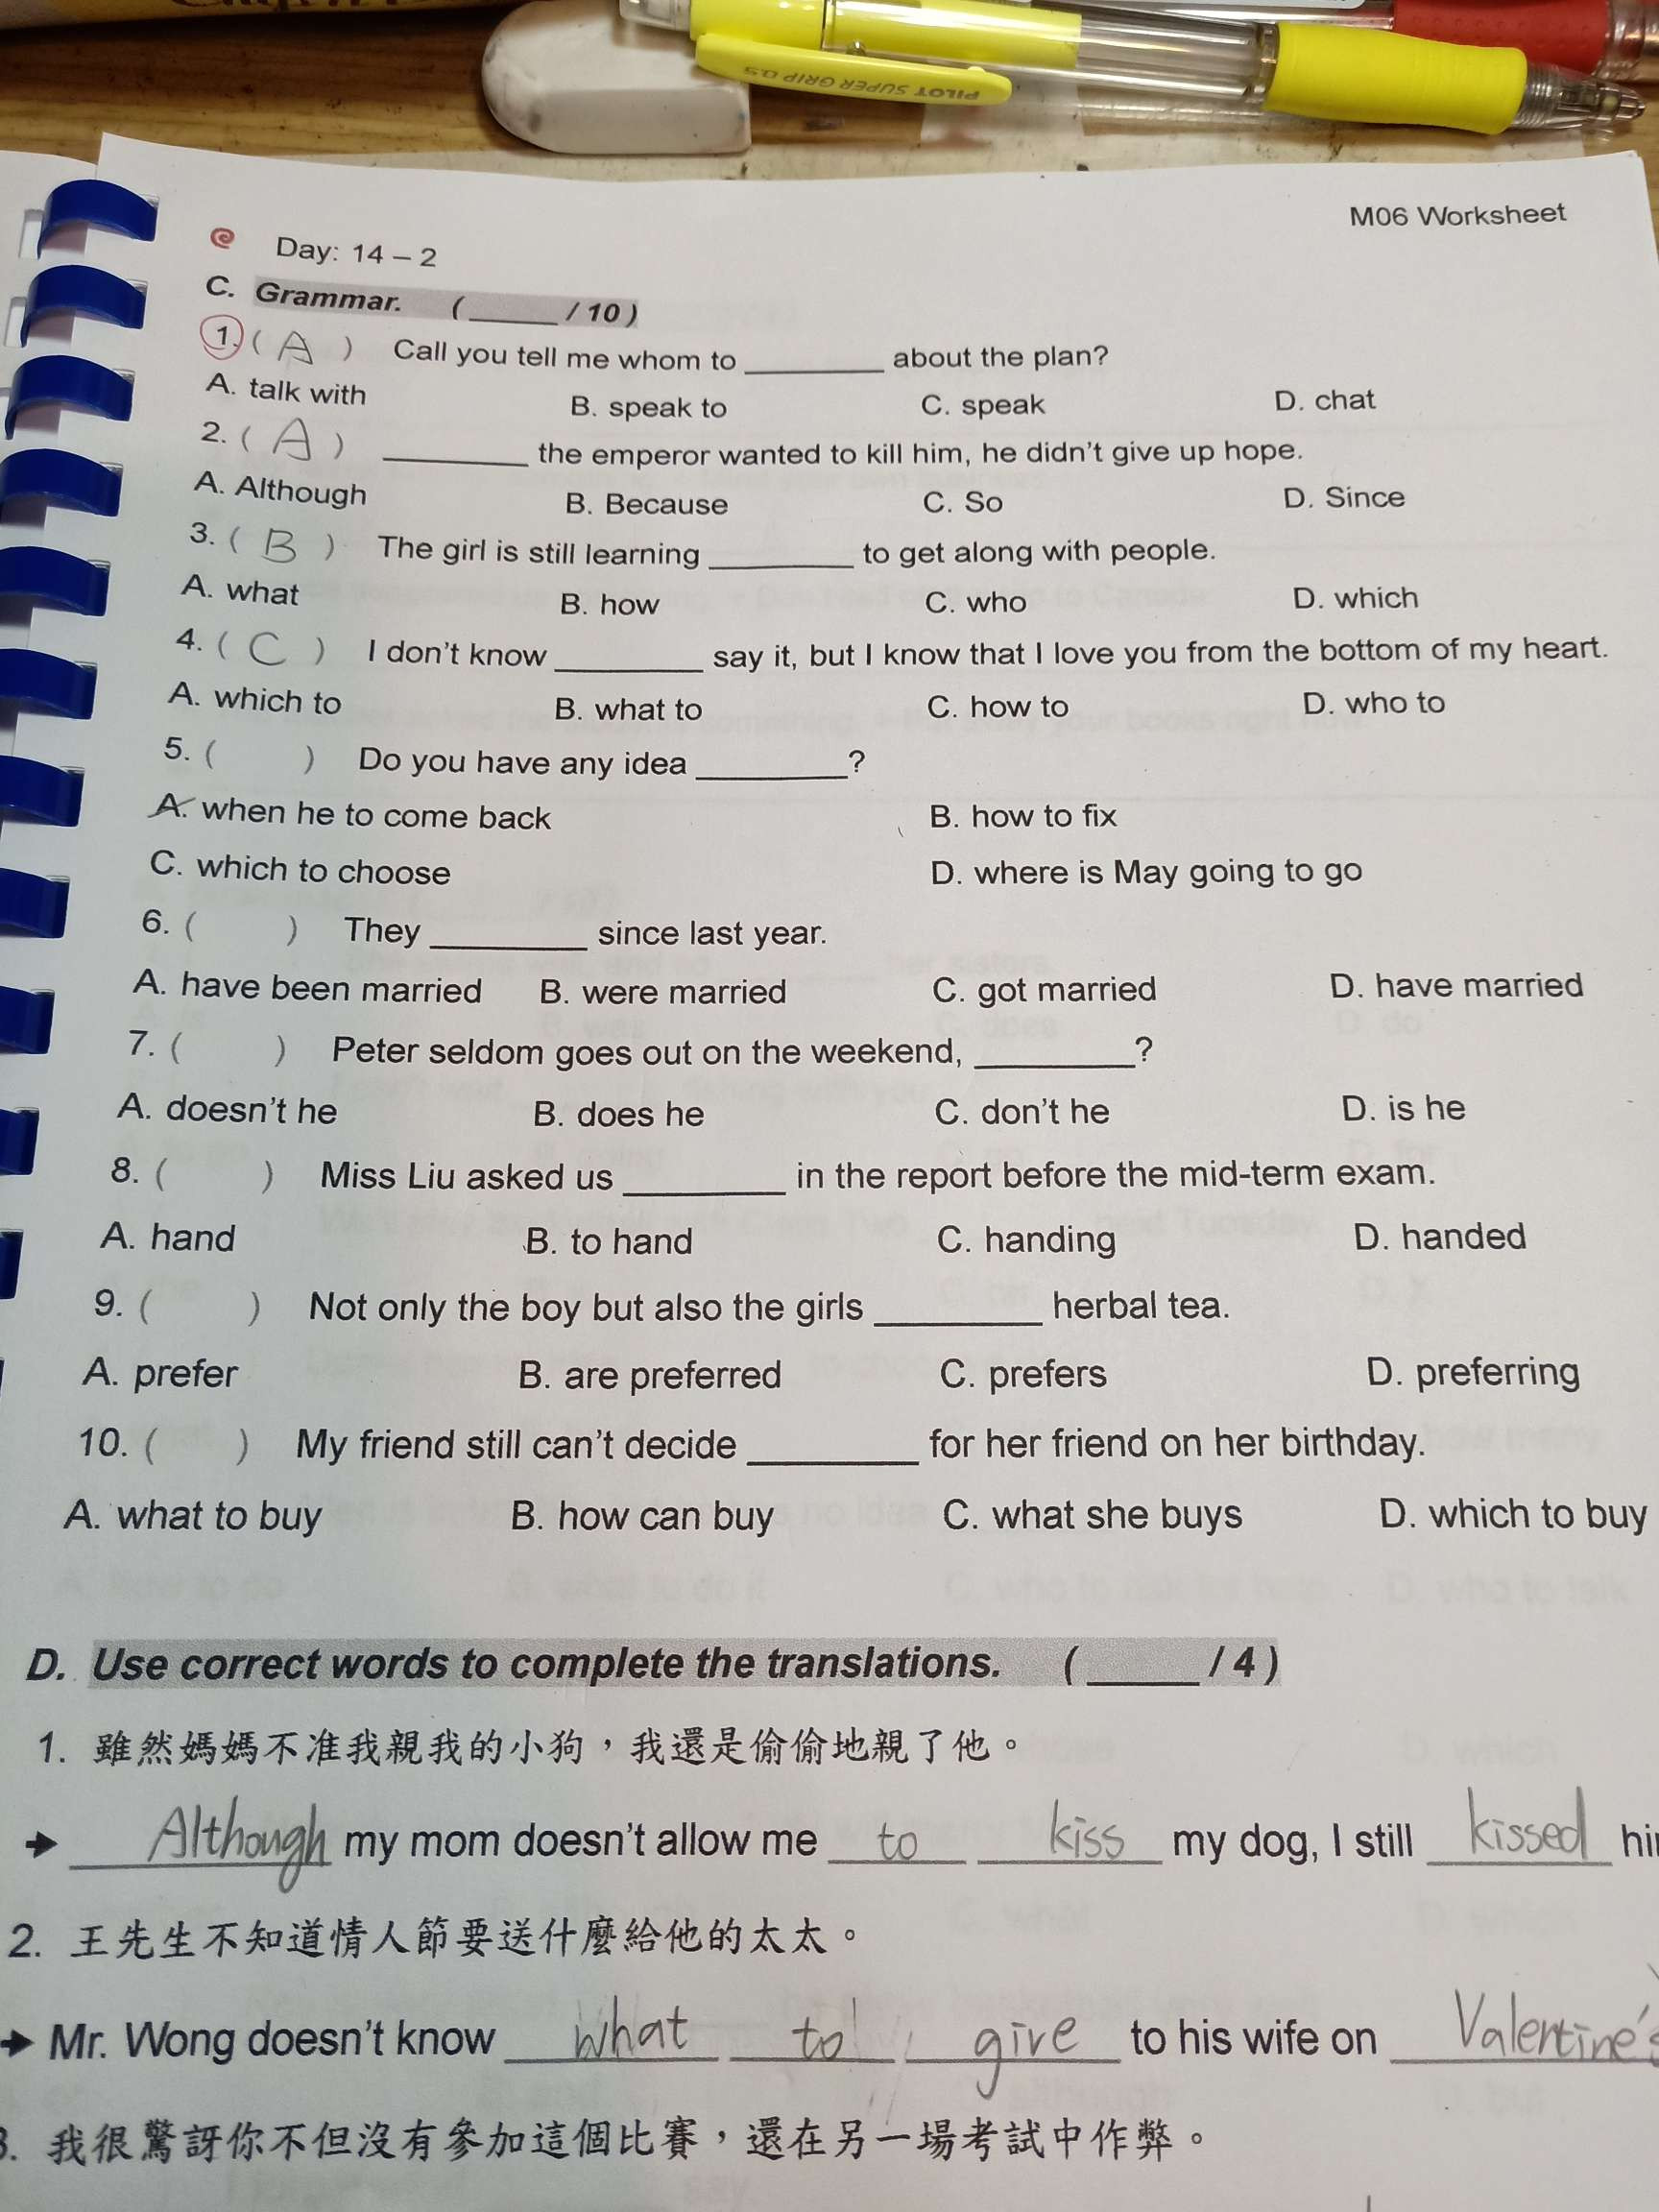 PILOT SUPER GRIP 0.5
M06 Worksheet
Day: 14 – 2
C. Grammar. ( ______ / 10 )
1. ( A ) Call you tell me whom to ________ about the plan?
A. talk with B. speak to C. speak D. chat
2. ( A ) ________ the emperor wanted to kill him, he didn't give up hope.
A. Although B. Because C. So D. Since
3. ( B ) The girl is still learning ________ to get along with people.
A. what B. how C. who D. which
4. ( C ) I don't know ________ say it, but I know that I love you from the bottom of my heart.
A. which to B. what to C. how to D. who to
5. ( ) Do you have any idea ________?
A. when he to come back B. how to fix
C. which to choose D. where is May going to go
6. ( ) They ________ since last year.
A. have been married B. were married C. got married D. have married
7. ( ) Peter seldom goes out on the weekend, ________?
A. doesn't he B. does he C. don't he D. is he
8. ( ) Miss Liu asked us ________ in the report before the mid-term exam.
A. hand B. to hand C. handing D. handed
9. ( ) Not only the boy but also the girls ________ herbal tea.
A. prefer B. are preferred C. prefers D. preferring
10. ( ) My friend still can't decide ________ for her friend on her birthday.
A. what to buy B. how can buy C. what she buys D. which to buy
D. Use correct words to complete the translations. ( ______ / 4 )
1. 雖然媽媽不准我親我的小狗，我還是偷偷地親了他。
→ Although my mom doesn't allow me to kiss my dog, I still kissed
2. 王先生不知道情人節要送什麼給他的太太。
→ Mr. Wong doesn't know what to give to his wife on Valentine's
3. 我很驚訝你不但沒有參加這個比賽，還在另一場考試中作弊。